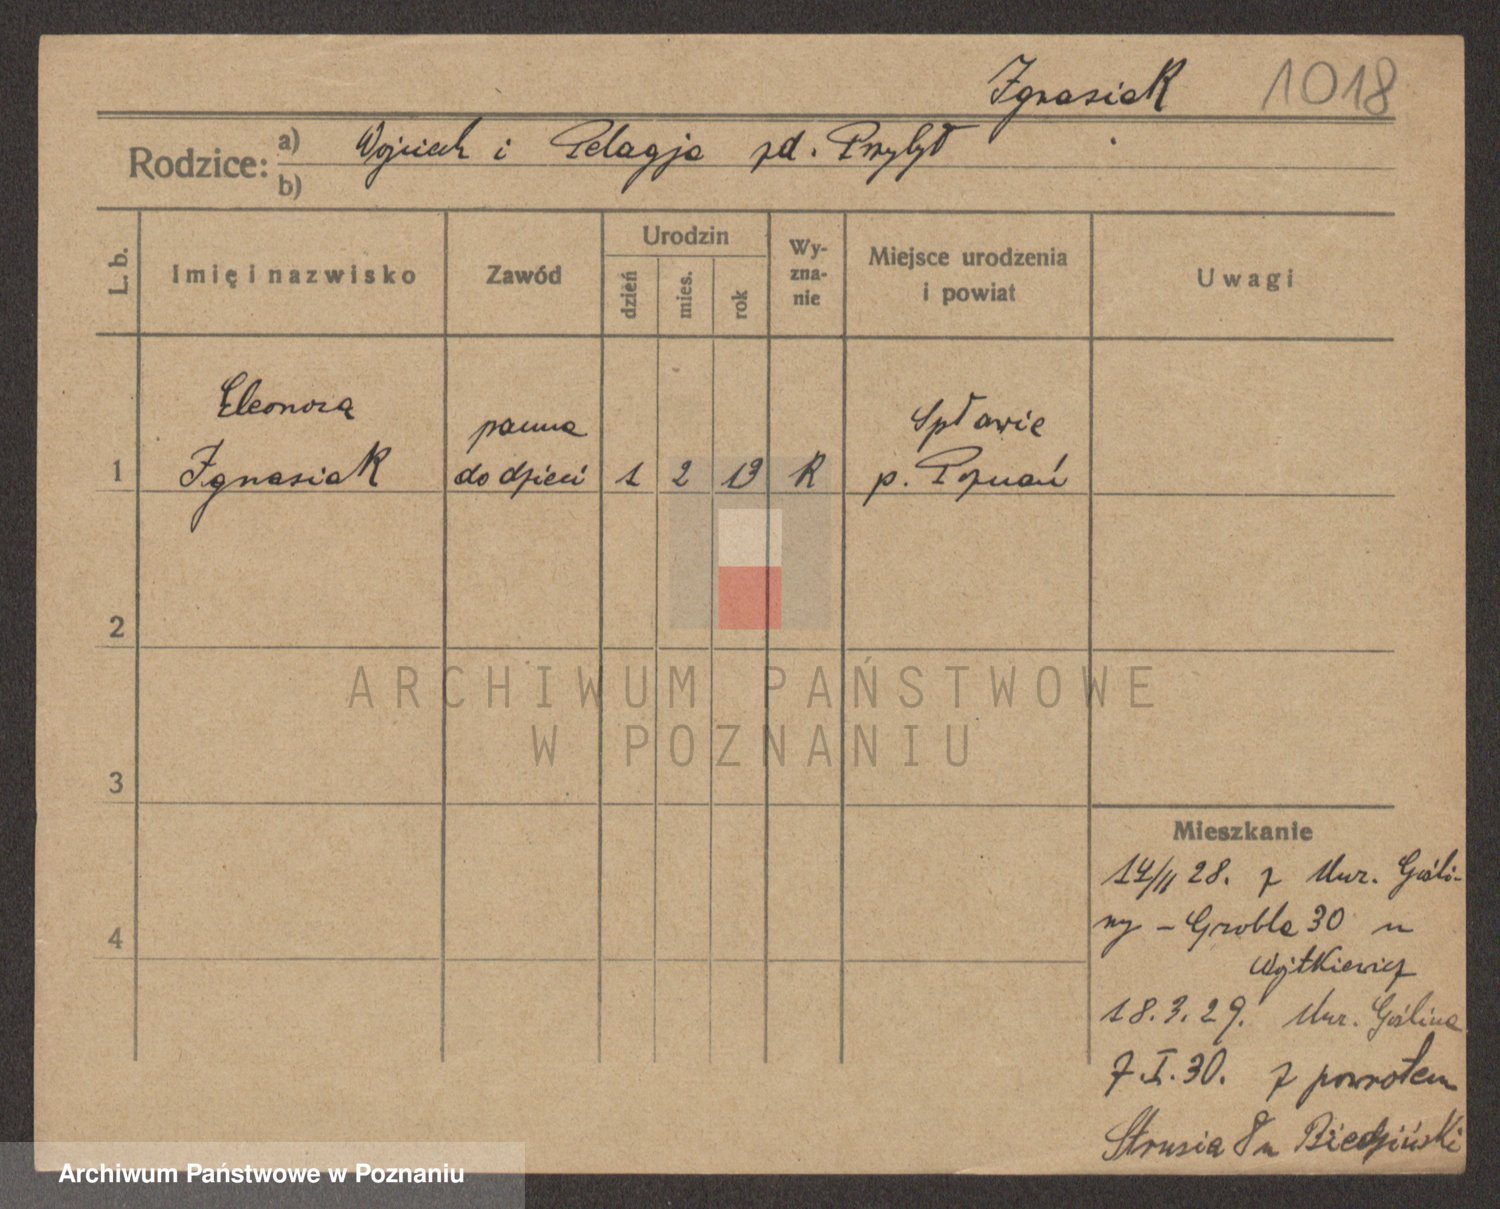 Ignasiak 1018
Rodzice: a) Wojciech i Pelagja zd. Przybył
b)
L. b. Imię i nazwisko Zawód Urodzin dzień mies. rok Wy-zna-nie Miejsce urodzenia i powiat Uwagi
Eleonora panna Spławie
1 Ignasiak do dzieci 1 2 13 R p. Poznań
2
3
4
ARCHIWUM PAŃSTWOWE
W POZNANIU
Mieszkanie
14/II 28. z Mur. Gośli-
ny - Grobla 30 u
Wojtkiewicz
18.3.29. Mur. Goślina
7.I.30. z powrotem
Strusia 8 u Biedziński
Archiwum Państwowe w Poznaniu